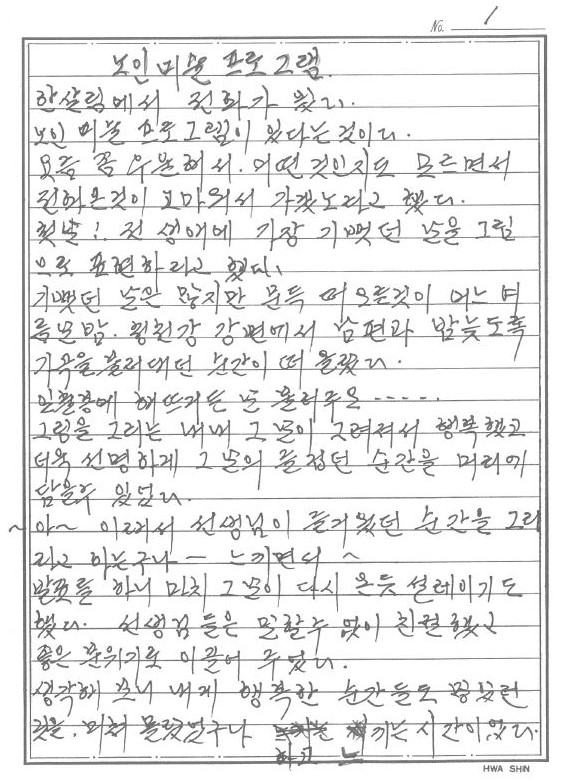 No. 1
노인 미술 프로그램.
한살림에서 전화가 왔다.
노인 미술 프로그램이 있다는것이다.
요즘 좀 우울해서. 어떤것인지도 모르면서
전화온것이 고마워서 가겠노라고 했다.
첫날! 전 생애에 가장 기뻤던 날을 그림
으로 표현하라고 했다.
기뻤던 날은 많지만 문득 떠오른것이 어느 여
름날밤. 강변에서 남편과 밤늦도록
가곡을 불러대던 순간이 떠 올랐다.
그림을 그리는 내내 그날이 그려져서 행복했고
더욱 선명하게 그 날의 즐겁던 순간을 머리에
담을수 있었다.
~아~ 이래서 선생님이 즐거웠던 순간을 그리
라고 하는구나 — 느끼면서 ~
발표를 하니 마치 그날이 다시 온듯 설레이기도
했다. 선생님들은 말할수 없이 친절했고
좋은 분위기로 이끌어 주었다.
생각해 보니 내게 행복한 순간들도 많았던
것을. 미처 몰랐었구나 하고 느끼는 시간이었다.
HWA SHIN